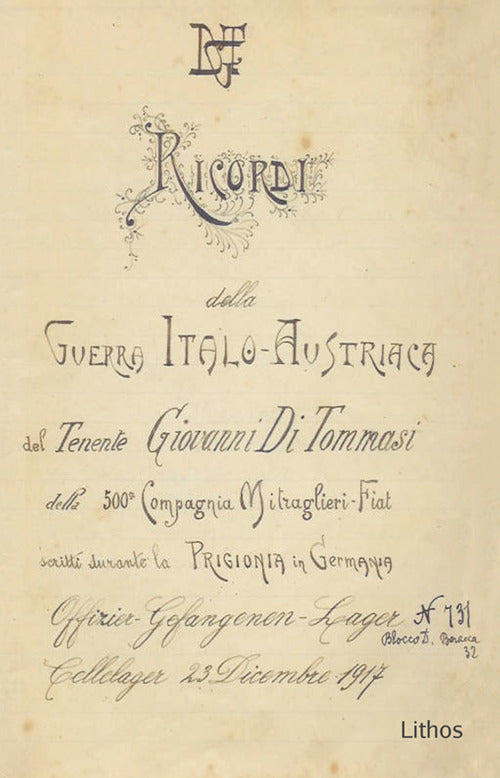 DGT
RICORDI
della
GUERRA ITALO-AUSTRIACA
del Tenente Giovanni Di Tommasi
della 500ª Compagnia Mitraglieri-Fiat
scritti durante la PRIGIONIA in GERMANIA
Offizier-Gefangenen-Lager N 731
Blocco D. Baracca
32
Cellelager 23 Dicembre 1917
Lithos